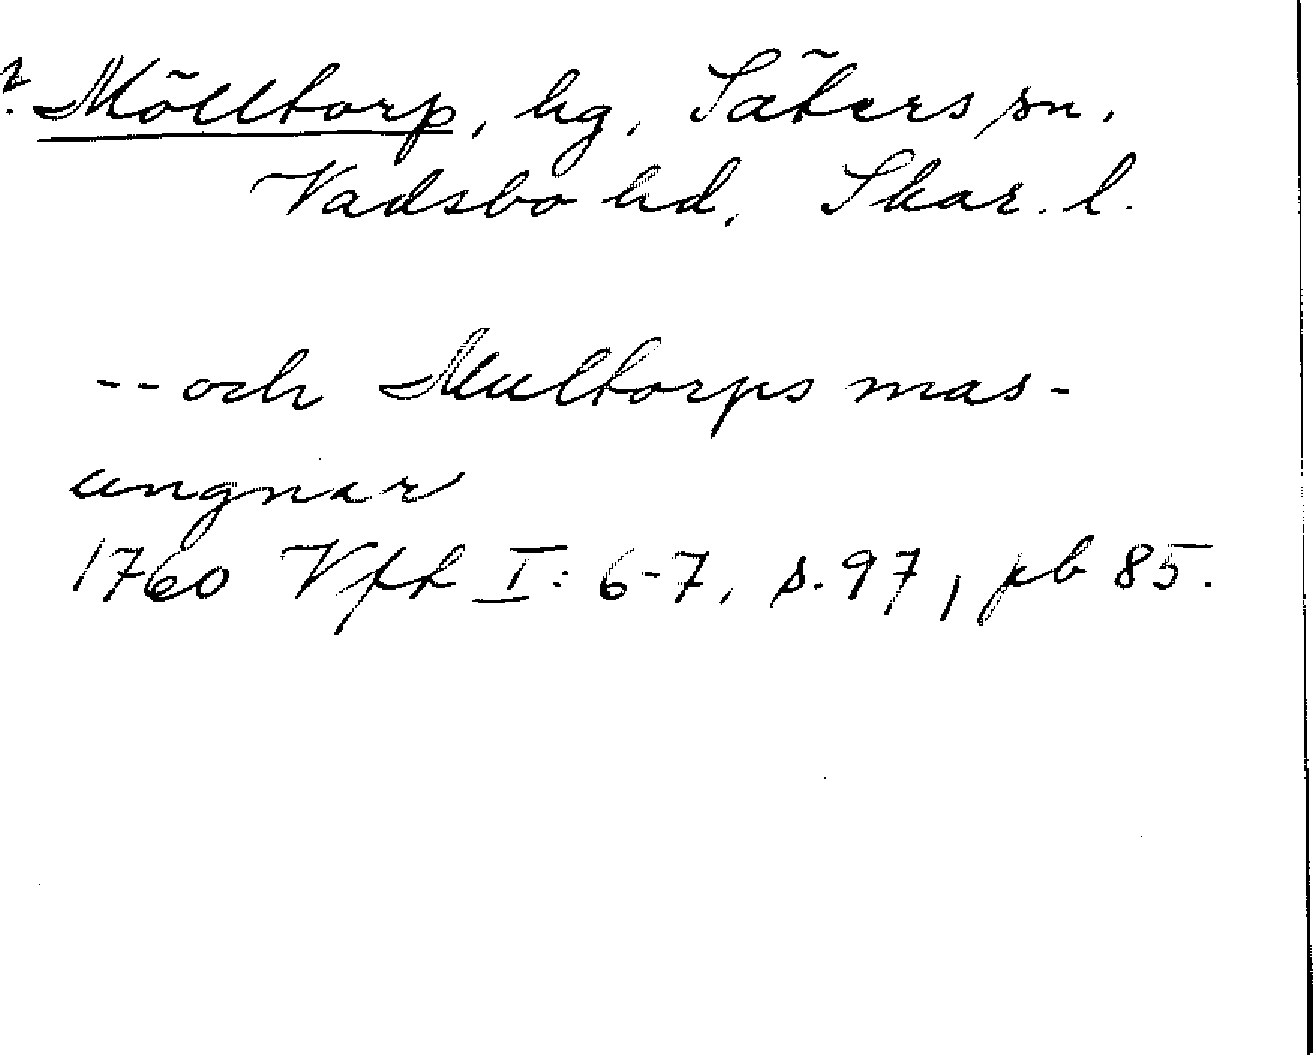 ? Mölltorp, hg, Säters sn.
Vadsbo hd. Skar. l.
-- och Multorps mas-
ungnar
1760 Vfk I: 6-7, s. 97, pb 85.